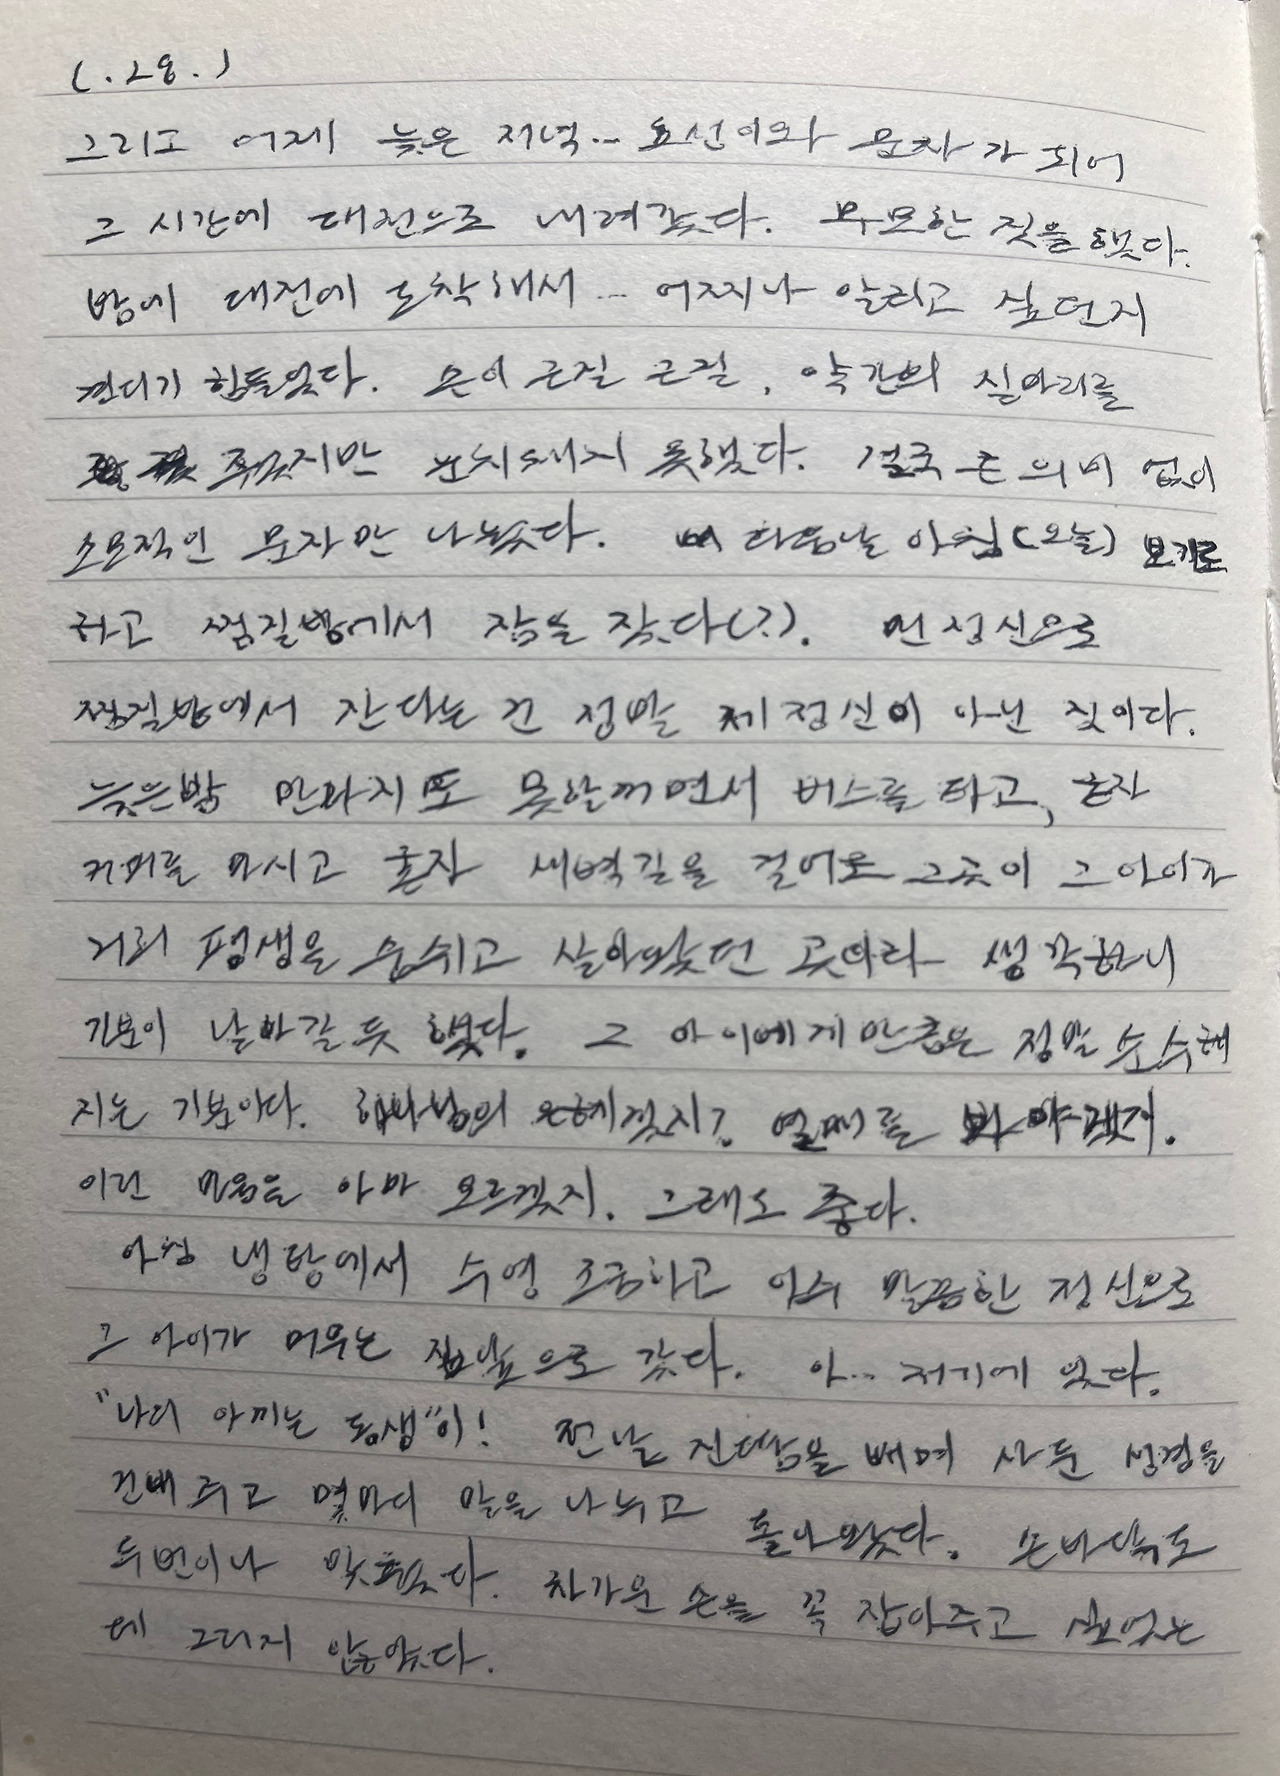 그리고 어제 늦은 저녁... 효선이와 문자가 되어
그 시간에 대전으로 내려갔다. 무모한 짓을 했다.
밤에 대전에 도착해서... 어찌나 알리고 싶던지
견디기 힘들었다. 손이 근질 근질, 약간의 실마리를
줬지만 눈치채지 못했다. 결국 큰 의미 없이
소모적인 문자만 나눴다. 다음날 아침(오늘) 보기로
하고 찜질방에서 잠을 잤다(?). 맨정신으로
찜질방에서 잔다는 건 정말 제정신이 아닌 짓이다.
늦은밤 만나지도 못할꺼면서 버스를 타고, 혼자
커피를 마시고 혼자 새벽길을 걸어도 그곳이 그 아이가
거의 평생을 숨쉬고 살아왔던 곳이라 생각하니
기분이 날아갈 듯 했다. 그 아이에게만큼은 정말 순수해
지는 기분이다. 하나님의 은혜겠지? 열매를 봐야겠지.
이런 마음을 아마 모르겠지. 그래도 좋다.
아침 냉탕에서 수영 조금하고 말끔한 정신으로
그 아이가 머무는 집앞으로 갔다. 아... 저기에 있다.
"나의 아끼는 동생"이! 전날 진땀을 빼며 사둔 성경을
건네주고 몇마디 말을 나누고 돌아왔다. 손바닥도
두번이나 맞췄다. 차가운 손을 꼭 잡아주고 싶었는
데 그러지 않았다.